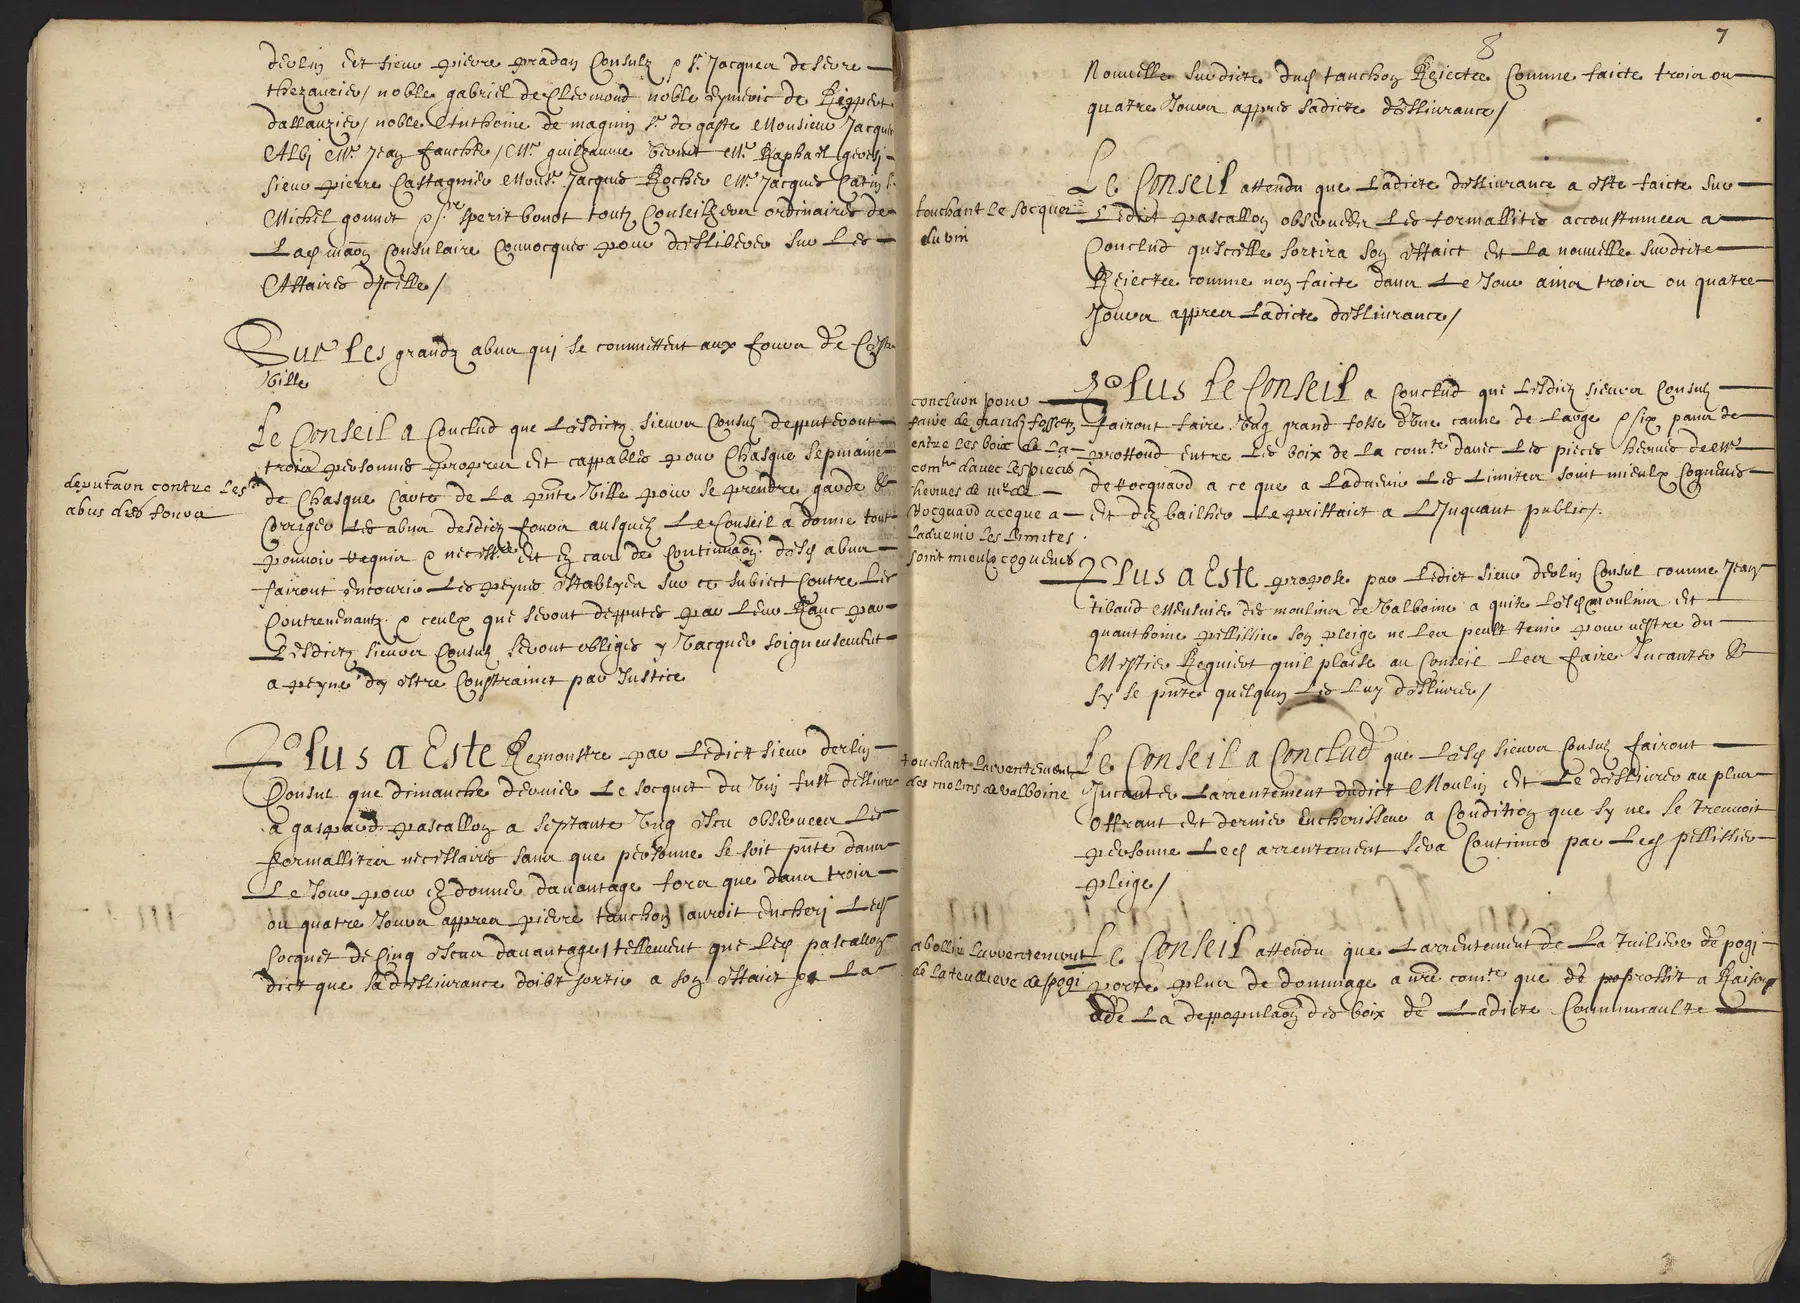 derlin et sieur pierre pradan Consulz & Sr. Jacques de serre
thezaurier / noble gabriel de Clermond noble Aymeric de Rippert
dallauzier / noble Anthoine de magnin Sr. de gaste Monsieur Jacques
Albi Mr. Jean fauchier / Mr. guilheaume benoit Mr. Raphael
sieur pierre Castagnier Monsr. Jacques Rochier Mr. Jacques
Michel gonnet & sperit bonot toutz Conseilhers ordinaires de
Lad. maon Consulaire Convocques pour desliberer sur Les
Affaires dicelle /
Sur Les grandz abus qui se committent aux fours de Ceste
Ville
deputaon contre Les
abus des fours
Le Conseil a Conclud que Lesdictz sieurs Consulz depputeront
trois personnes propres et cappables pour Chasque sepmaine
de Chasque Carte de La pnte Ville pour se prendre garde &
Corriger Les abus desdictz fours ausquelz Le Conseil a donne tout
pouvoir requis & necessre. Et en cas de Continuaon. desd. abus
fairont encourir Les peynes establyes sur ce subiect Contre Les
Contrevenantz & ceulx que seront depputes par leur Ranc par
Lesdictz sieurs Consulz seront obliges y Vacquer soigneusement
a peyne d'y estre Constrainct par Justice
Plus a Este Remonstre par Ledict sieur derlin
Consul que dimanche dernier Le socquet du Vin fust deslivre
a gaspard pascallon a septante Ung escu observees Les
formallites necessaires sans que personne se soit pnte dans
Le Jour pour en donner davantage fors que dans trois
ou quatre Jours appres pierre tanchon auroit encheri Led.
socquet de Cinq escus davantage / tellement que Led. pascallon
dict que sa deslivrance doibt sortir a son effaict La
8
7
Nouvelle surdicte dud. tanchon Reiectee Comme faicte trois ou
quatre Jours appres sadicte deslivrance /
touchant Le socquet
du vin
Le Conseil attendu que Ladicte deslivrance a este faicte sur
Ledict pascallon observees Les formallites accoustumees a
Conclud qu'icelle sortira son effaict et La nouvelle surdicte
Reiectee comme non faicte dans Le Jour ains trois ou quatre
Jours appres Ladicte deslivrance /
concluon pour
faire de grands fossetz
entre Les bois de La
comte. d'avec Les pieces
hermes de mr. de
Rocquard aceque a
Ladvenir Les Limites
soint mieulx cogneues
Plus Le Conseil a Conclud que Lesdictz sieurs Consulz
fairont faire Ung grand fosse d'Une canne de Large & six pans de
proffond entre Les boix de La comte. d'avec Les pieces hermes de mr.
de Rocquard a ce que a Ladvenir Les Limites soint mieulx Cogneues
Et d'en bailher Le prisfaict a L'Inquant public /.
Plus a Este propose par Ledict sieur derlin Consul comme Jean
tibaud Meusnier des moulins de Valboine a quite Lesd. moulins et
qu'anthoine pellissier son pleige ne Les peult tenir pour n'estre du
Mestier Requiert quil plaise au Conseil Les faire Incanter &
sy se pnte quelqun Les Luy deslivrer /
touchant Larrentement
des molins de valboine
Le Conseil a Conclud que Lesd. sieurs Consulz fairont
Incanter Larrentement dudict Moulin et Le deslivrer au plus
offrant et dernier Encherisseur a Condition que sy ne se treuvoit
personne Led. arrentement sera Continue par Led. pellissier
pleige /
abollir Larrentement
de La teulliere de pogi
Le Conseil attendu que Larrentement de La Tuiliere de pogi
porte plus de dommage a nre. comte. que de proffit a Raison
de La deppopulaon des boix de Ladicte Communaulte